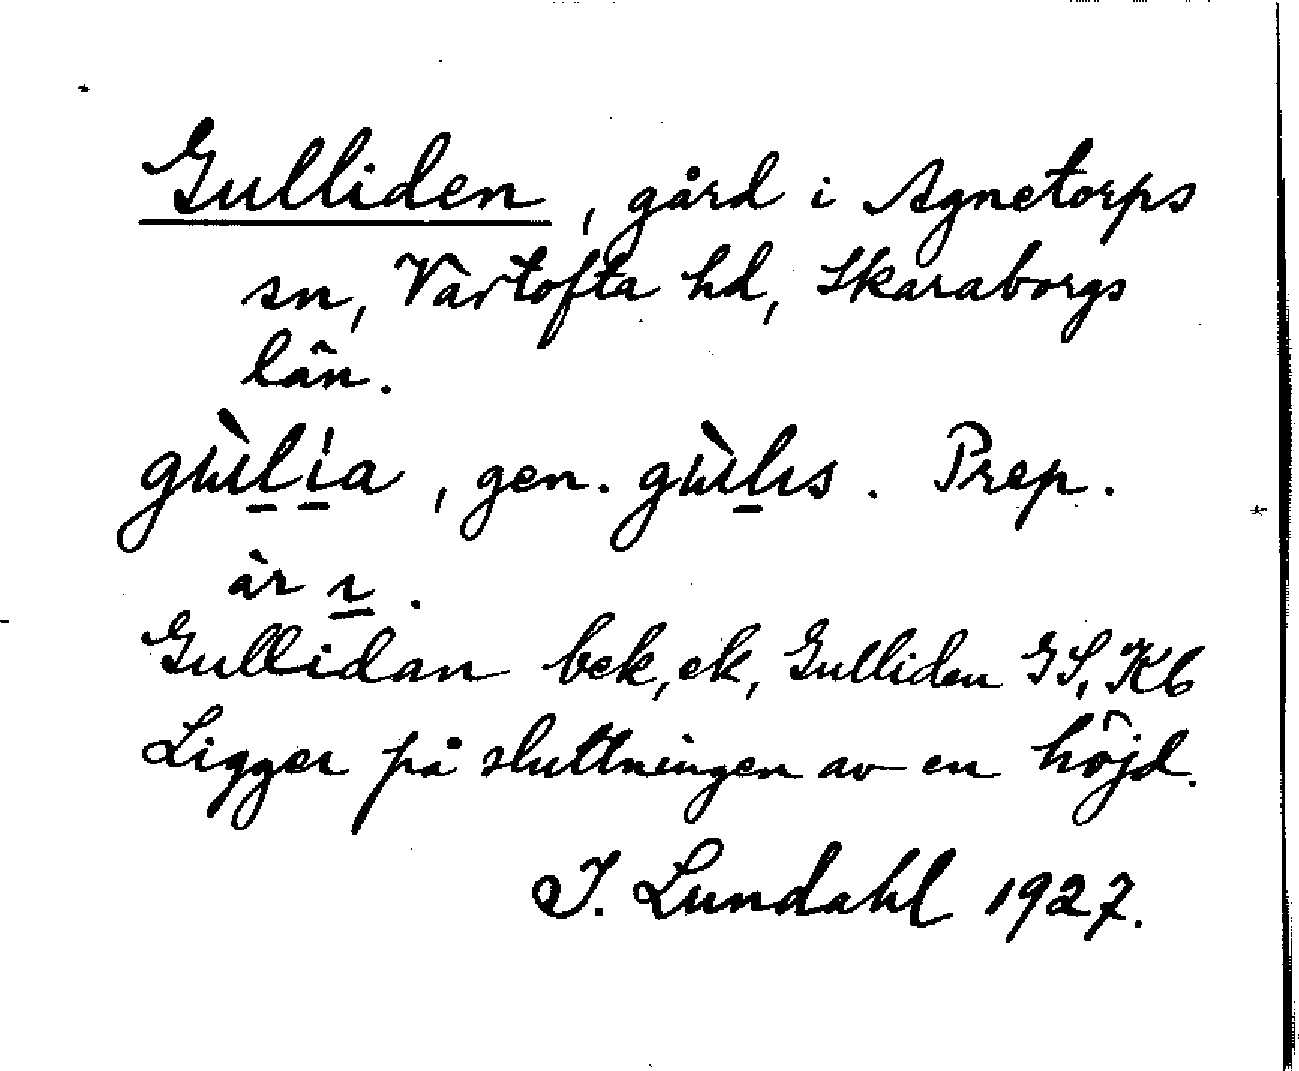 Gulliden, gård i Agnetorps
sn, Vartofta hd, Skaraborgs
län.
gen. Prep.
är ı.
Gullidan bek, ek, Gulliden GS, Kb
Ligger på sluttningen av en höjd.
I. Lundahl 1927.